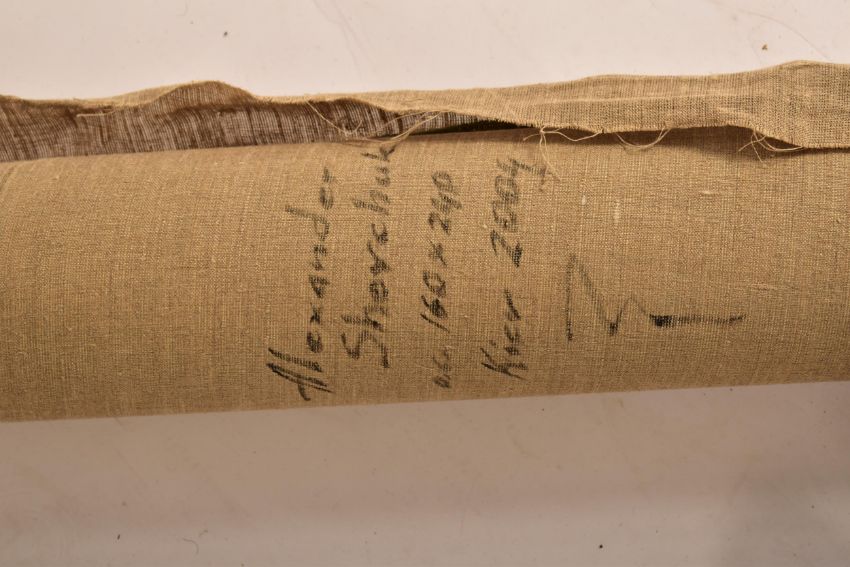 Alexander
Shevchuk
o.c. 160 x 240
Kiev 2004